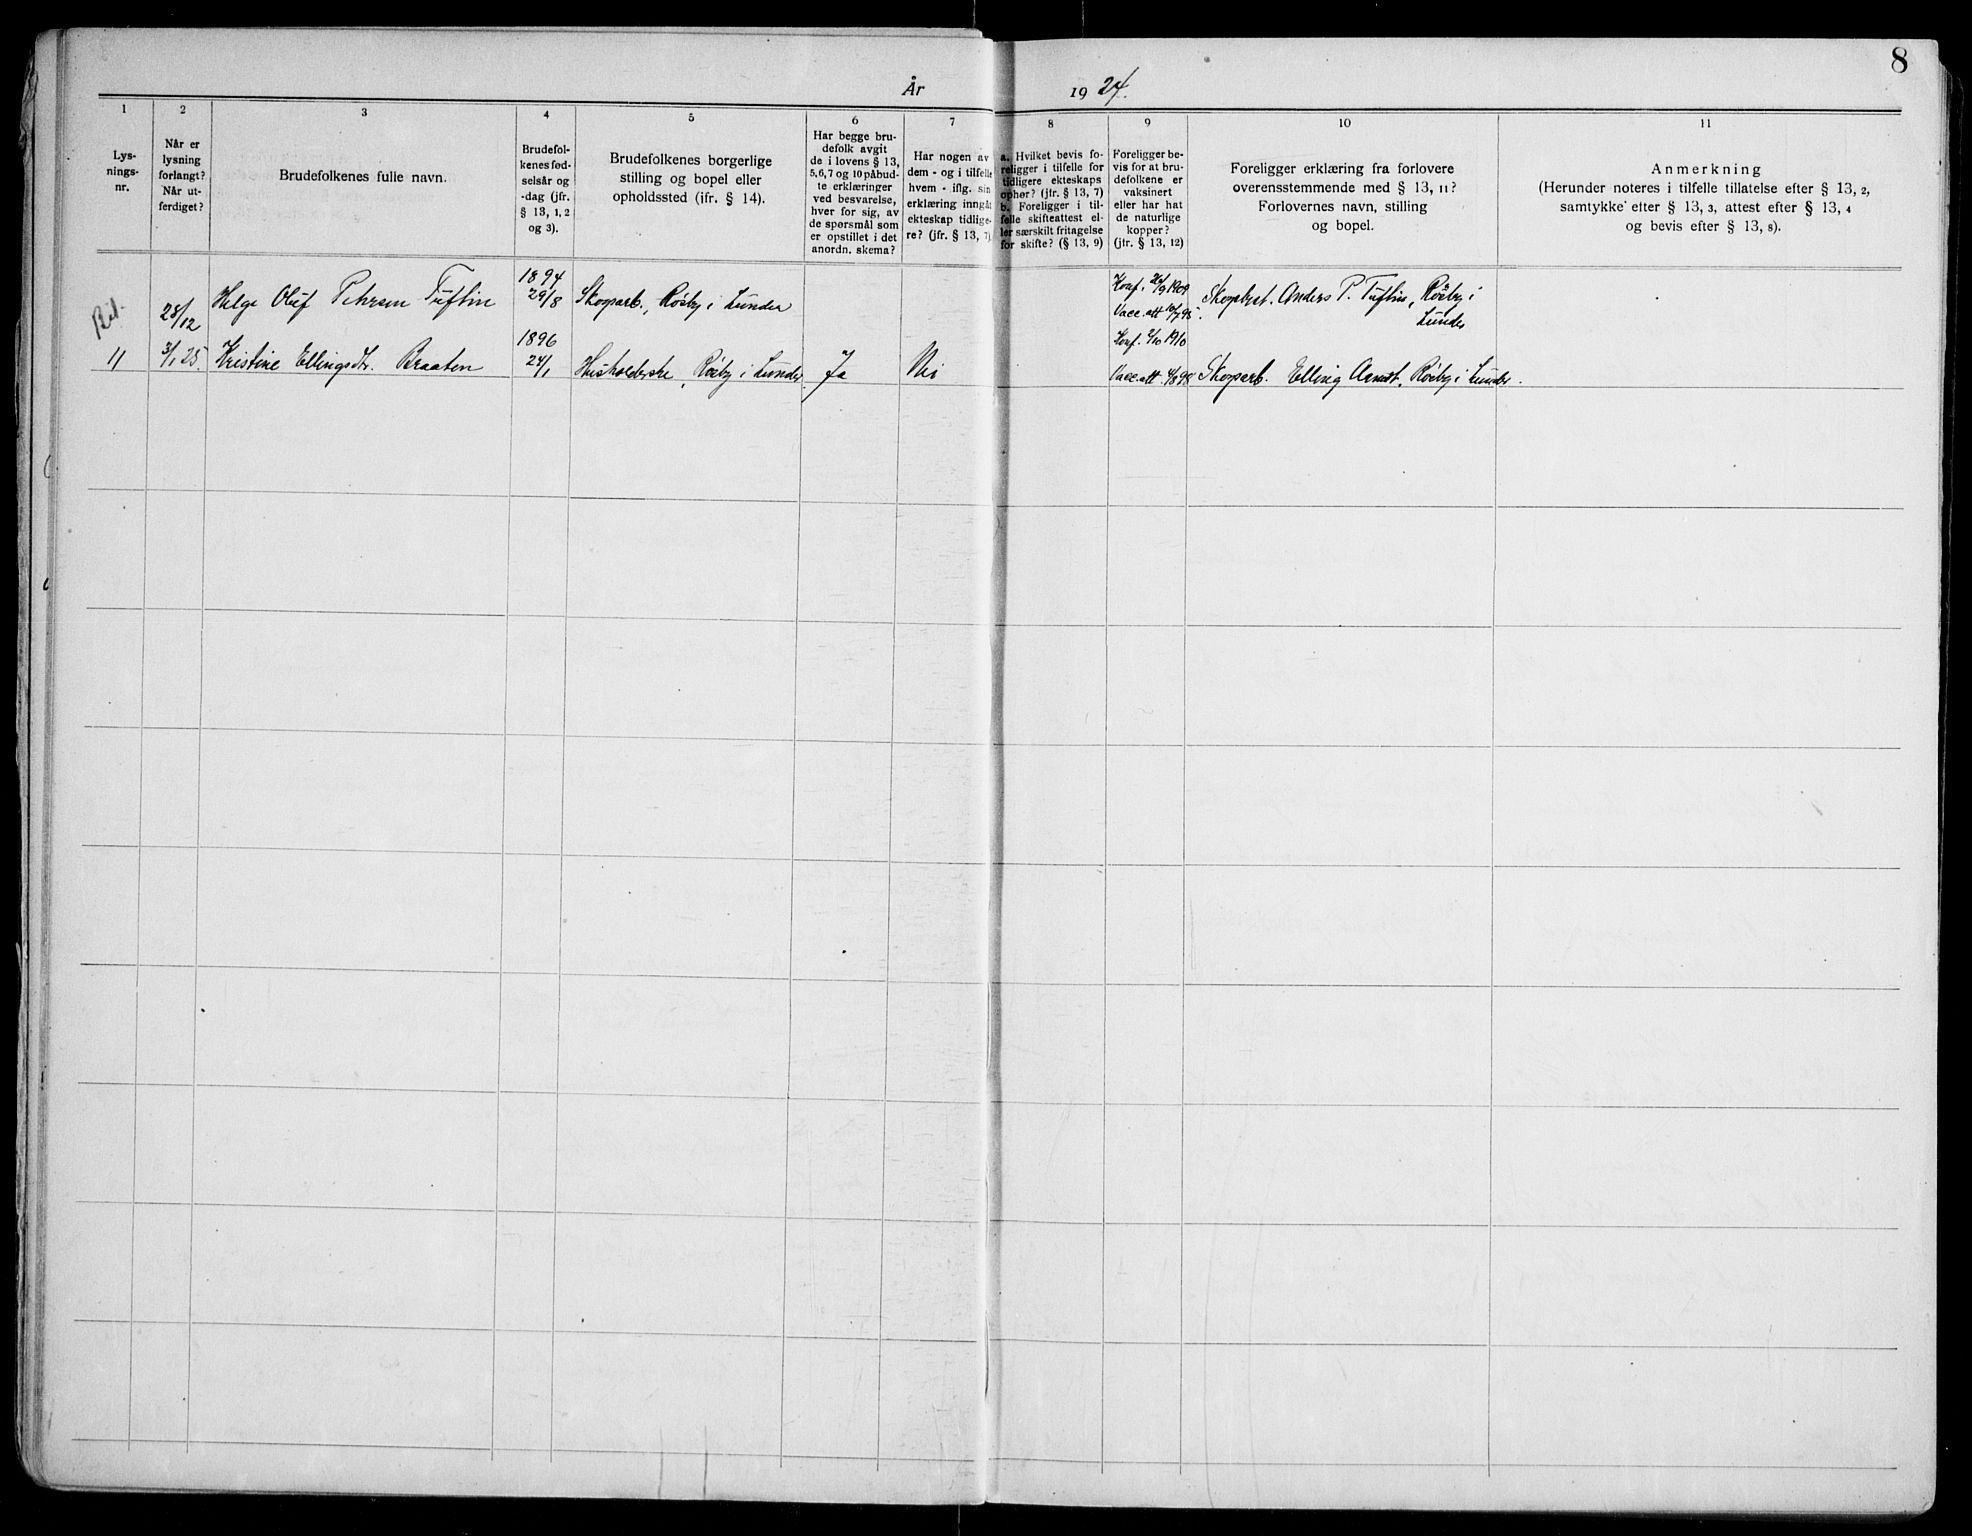 8
År 1924.
1
Lys-
nings-
nr.
2
Når er
lysning
forlangt?
Når ut-
ferdiget?
3
Brudefolkenes fulle navn.
4
Brudefol-
kenes fød-
selsår og
-dag (jfr.
§ 13, 1, 2
og 3).
5
Brudefolkenes borgerlige
stilling og bopel eller
opholdssted (jfr. § 14).
6
Har begge bru-
defolk avgit
de i lovens § 13,
5,6,7 og 10 påbud-
te erklæringer
ved besvarelse,
hver for sig, av
de spørsmål som
er opstillet i det
anordn. skema?
7
Har nogen av
dem - og i tilfelle
hvem - iflg. sin
erklæring inngåt
ekteskap tidlige-
re? (jfr. § 13, 7)
8
a. Hvilket bevis fo-
religger i tilfelle for
tidligere ekteskaps
ophør? (jfr. § 13, 7)
b. Foreligger i til-
felle skifteattest el-
ler særskilt fritagelse
for skifte? (§ 13, 9)
9
Foreligger be-
vis for at bru-
defolkene er
vaksinert
eller har hat
de naturlige
kopper?
(jfr. § 13, 12)
10
Foreligger erklæring fra forlovere
overensstemmende med § 13, 11?
Forlovernes navn, stilling
og bopel.
11
Anmerkning
(Herunder noteres i tilfelle tillatelse efter § 13, 2,
samtykke efter § 13, 3, attest efter § 13, 4
og bevis efter § 13, 8).
11
28/12
3/1 25.
Helge Oluf Petersen Tuftin
1894
29/8
Skogarb., Rösby i Lunder
Konf. 26/9 1909
Vacc. att 10/7 95.
Skogbest. Anders P. Tuftin, Rösby i
Lunder
Kristine Ellingsdtr. Braaten
1896
24/1
Husholderske, Rösby i Lunder
Ja
Nei
Konf. 2/10 1910
Vacc. att 4/8 98
Skogarb. Elling Arnst, Rösby i Lunder.